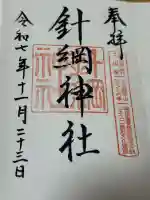 奉拝
針綱神社
令和七年十一月二十三日